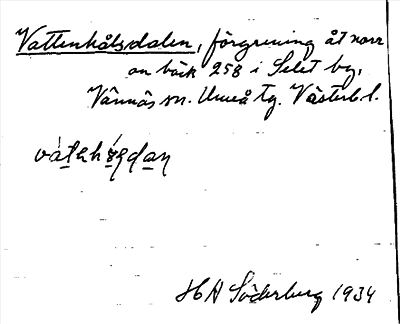 Vattenhålsdalen, förgrening åt norr
om bäck 258 i Selet by,
Vännäs sn. Umeå tg. Västerb.l.
H A Söderberg 1934